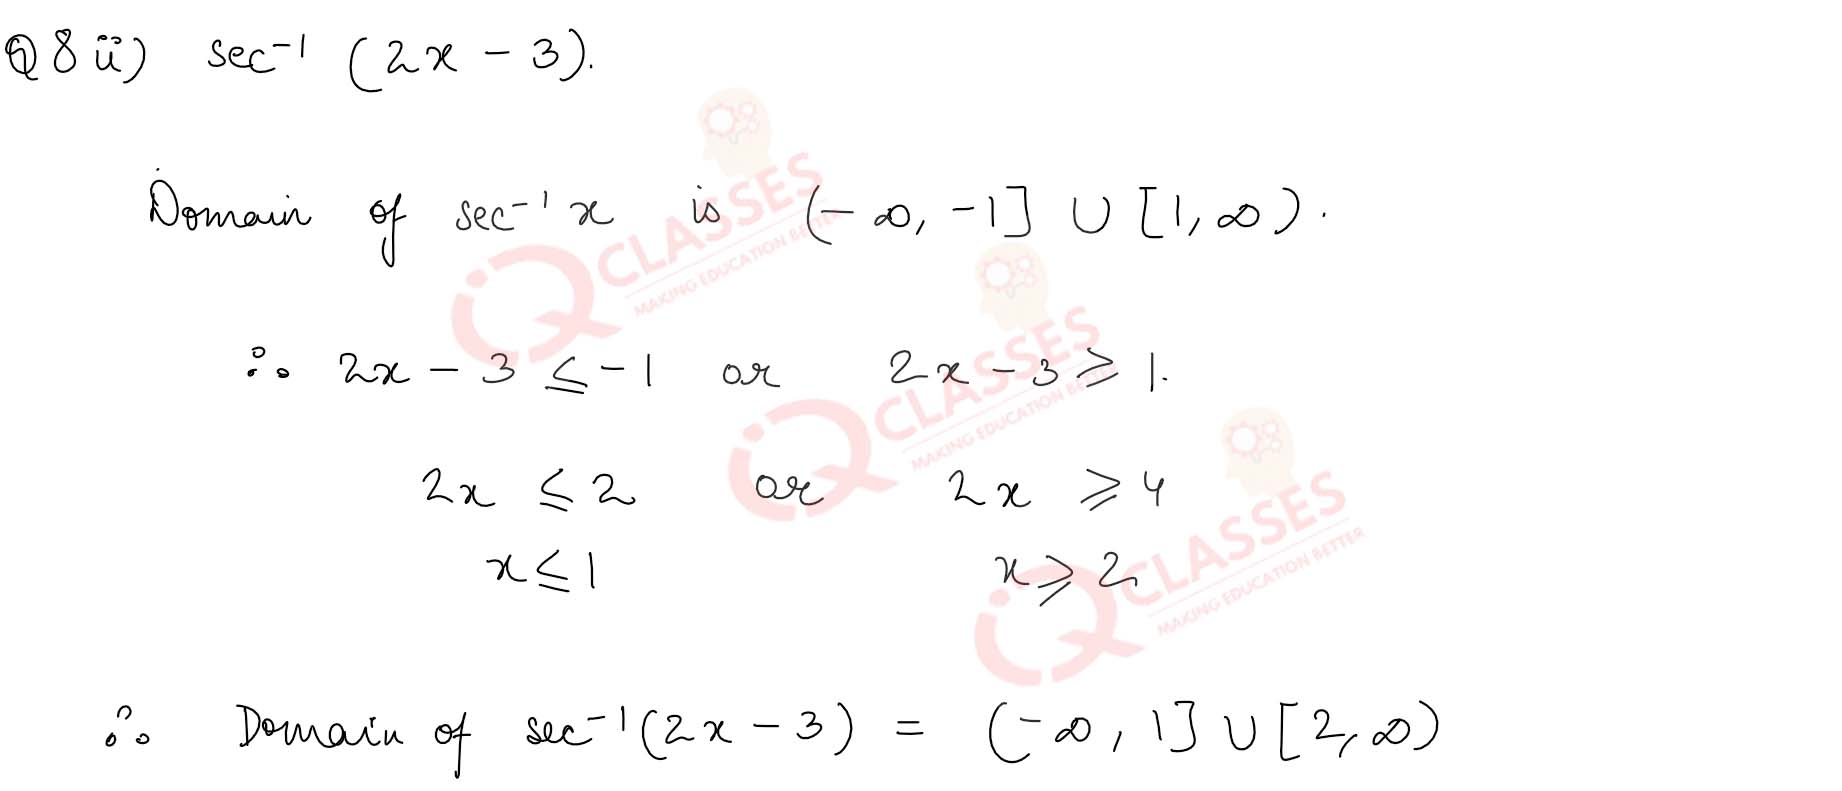 Q8 ii) sec⁻¹ (2x - 3).
Domain of sec⁻¹ x is (-∞, -1] ∪ [1, ∞).
∴ 2x - 3 ≤ -1 or 2x - 3 ≥ 1.
2x ≤ 2 or 2x ≥ 4
x ≤ 1 x ≥ 2
∴ Domain of sec⁻¹(2x - 3) = (-∞, 1] ∪ [2, ∞)
iQ CLASSES
MAKING EDUCATION BETTER
iQ CLASSES
MAKING EDUCATION BETTER
iQ CLASSES
MAKING EDUCATION BETTER